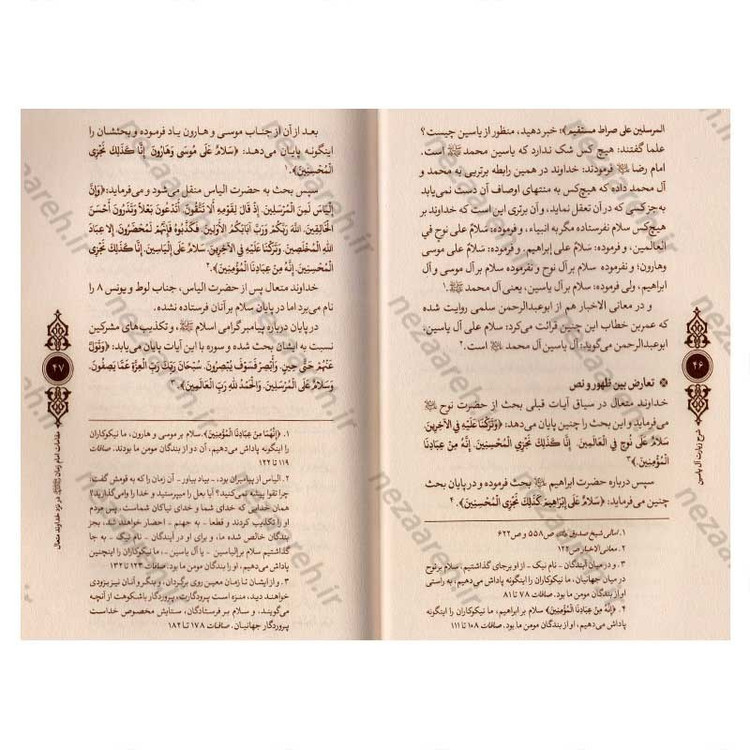 المرسلین علی صراط مستقیم﴾: خبر دهید، منظور از یاسین چیست؟
علما گفتند: هیچ کس شک ندارد که یاسین محمد ﷺ است.
امام رضا فرمودند: خداوند در همین رابطه برتریی به محمد و
آل محمد داده که هیچ‌کس به منتهای اوصاف آن دست نمی‌یابد
به جز کسی که در آن تعقل نماید، و آن برتری این است که خداوند بر
هیچ‌کس سلام نفرستاده مگر به انبیاء، و فرموده: سَلامٌ علی نوح فی
العالمین، و فرموده: سَلامٌ علی إبراهیم. و فرموده: سَلامٌ علی موسی
وهارون؛ و نفرموده سلام بر آل نوح و نفرموده سلام بر آل موسی و آل
ابراهیم، ولی فرموده: سلام بر آل یاسین، یعنی آل محمد.۱
و در معانی الاخبار هم از ابوعبدالرحمن سلمی روایت شده
که عمر بن خطاب این چنین قرائت می‌کرد: سلام علی آل یاسین،
ابوعبدالرحمن می‌گوید: آل یاسین آل محمد است.۲
تعارض بین ظهور و نص
خداوند متعال در سیاق آیات قبلی بحث از حضرت نوح
می‌فرماید و این بحث را چنین پایان می‌دهد: ﴿وَتَرَكْنَا عَلَيْهِ فِي الْآخِرِينَ.
سَلَامٌ عَلَى نُوحٍ فِي الْعَالَمِينَ. إِنَّا كَذَلِكَ نَجْزِي الْمُحْسِنِينَ. إِنَّهُ مِنْ عِبَادِنَا
الْمُؤْمِنِينَ.﴾۳
سپس درباره حضرت ابراهیم بحث فرموده و در پایان بحث
چنین می‌فرماید: ﴿سَلَامٌ عَلَى إِبْرَاهِيمَ كَذَلِكَ نَجْزِي الْمُحْسِنِينَ.﴾۴
۱. امالی شیخ صدوق، ص ۵۵۸ و ص ۶۲۲
۲. معانی الاخبار ص ۱۲۲
۳. و در میان آیندگان - نام نیک - از او بر جای گذاشتیم. سلام بر نوح
در میان جهانیان، ما نیکوکاران را اینگونه پاداش می‌دهیم، به راستی
او از بندگان مومن ما بود. صافات ۷۸ تا ۸۱
۴. ﴿إِنَّهُ مِنْ عِبَادِنَا الْمُؤْمِنِينَ﴾ سلام بر ابراهیم، ما نیکوکاران را اینگونه
پاداش می‌دهیم، او از بندگان مومن ما بود. صافات ۱۰۸ تا ۱۱۱
۴۶
شرح زیارت آل یاسین
بعد از آن از جناب موسی و هارون یاد فرموده و بحثشان را
اینگونه پایان می‌دهد: ﴿سَلَامٌ عَلَى مُوسَى وَهَارُونَ. إِنَّا كَذَلِكَ نَجْزِي
الْمُحْسِنِينَ.﴾۱
سپس بحث به حضرت الیاس منتقل می‌شود و می‌فرماید: ﴿وَإِنَّ
إِلْيَاسَ لَمِنَ الْمُرْسَلِينَ. إِذْ قَالَ لِقَوْمِهِ أَلَا تَتَّقُونَ. أَتَدْعُونَ بَعْلًا وَتَذَرُونَ أَحْسَنَ
الْخَالِقِينَ. اللَّهَ رَبَّكُمْ وَرَبَّ آبَائِكُمُ الْأَوَّلِينَ. فَكَذَّبُوهُ فَإِنَّهُمْ لَمُحْضَرُونَ. إِلَّا عِبَادَ
اللَّهِ الْمُخْلَصِينَ. وَتَرَكْنَا عَلَيْهِ فِي الْآخِرِينَ. سَلَامٌ عَلَى إِلْيَاسِينَ. إِنَّا كَذَلِكَ نَجْزِي
الْمُحْسِنِينَ. إِنَّهُ مِنْ عِبَادِنَا الْمُؤْمِنِينَ﴾۲
خداوند متعال پس از حضرت الیاس، جناب لوط و یونس را
نام می‌برد اما در پایان سلام بر آنان فرستاده نشده.
در پایان درباره پیامبر گرامی اسلام ﷺ، و تکذیب‌های مشرکین
نسبت به ایشان بحث شده و سوره با این آیات پایان می‌یابد: ﴿وَتَوَلَّ
عَنْهُمْ حَتَّى حِينٍ. وَأَبْصِرْ فَسَوْفَ يُبْصِرُونَ. سُبْحَانَ رَبِّكَ رَبِّ الْعِزَّةِ عَمَّا يَصِفُونَ.
وَسَلَامٌ عَلَى الْمُرْسَلِينَ. وَالْحَمْدُ لِلَّهِ رَبِّ الْعَالَمِينَ.﴾۳
۱. ﴿إِنَّهُمَا مِنْ عِبَادِنَا الْمُؤْمِنِينَ﴾. سلام بر موسی و هارون، ما نیکوکاران
را اینگونه پاداش می‌دهیم، آن دو از بندگان مومن ما بودند. صافات
۱۱۹ تا ۱۲۲
۲. الیاس از پیامبران بود، - بیاد بیاور - آن زمان را که به قومش گفت:
چرا تقوا پیشه نمی‌کنید؟ آیا بعل را میپرستید و خدا را وامی‌گذارید؟
همان خدایی که خدای شما و خدای نیاکان شماست. پس مردم
او را تکذیب کردند و قطعا - به جهنم - احضار خواهند شد، بجز
بندگان خالص شده ما، و برای او در آیندگان - نام نیک - به جا
گذاشتیم سلام بر الیاسین - یا آل یاسین -، ما نیکوکاران را اینچنین
پاداش می‌دهیم، او از بندگان مومن ما بود. صافات ۱۲۳ تا ۱۳۲
۳. و از ایشان تا زمان معین روی برگردان، و بنگر و آنان نیز بزودی
خواهند دید، منزه است پروردگارت، پروردگار باشکوهت از آنچه
می‌گویند، و سلام بر فرستادگان، ستایش مخصوص خداست
پروردگار جهانیان. صافات ۱۷۸ تا ۱۸۲
۴۷
مقامات امام زمان در نزد خداوند متعال
nezaareh.ir